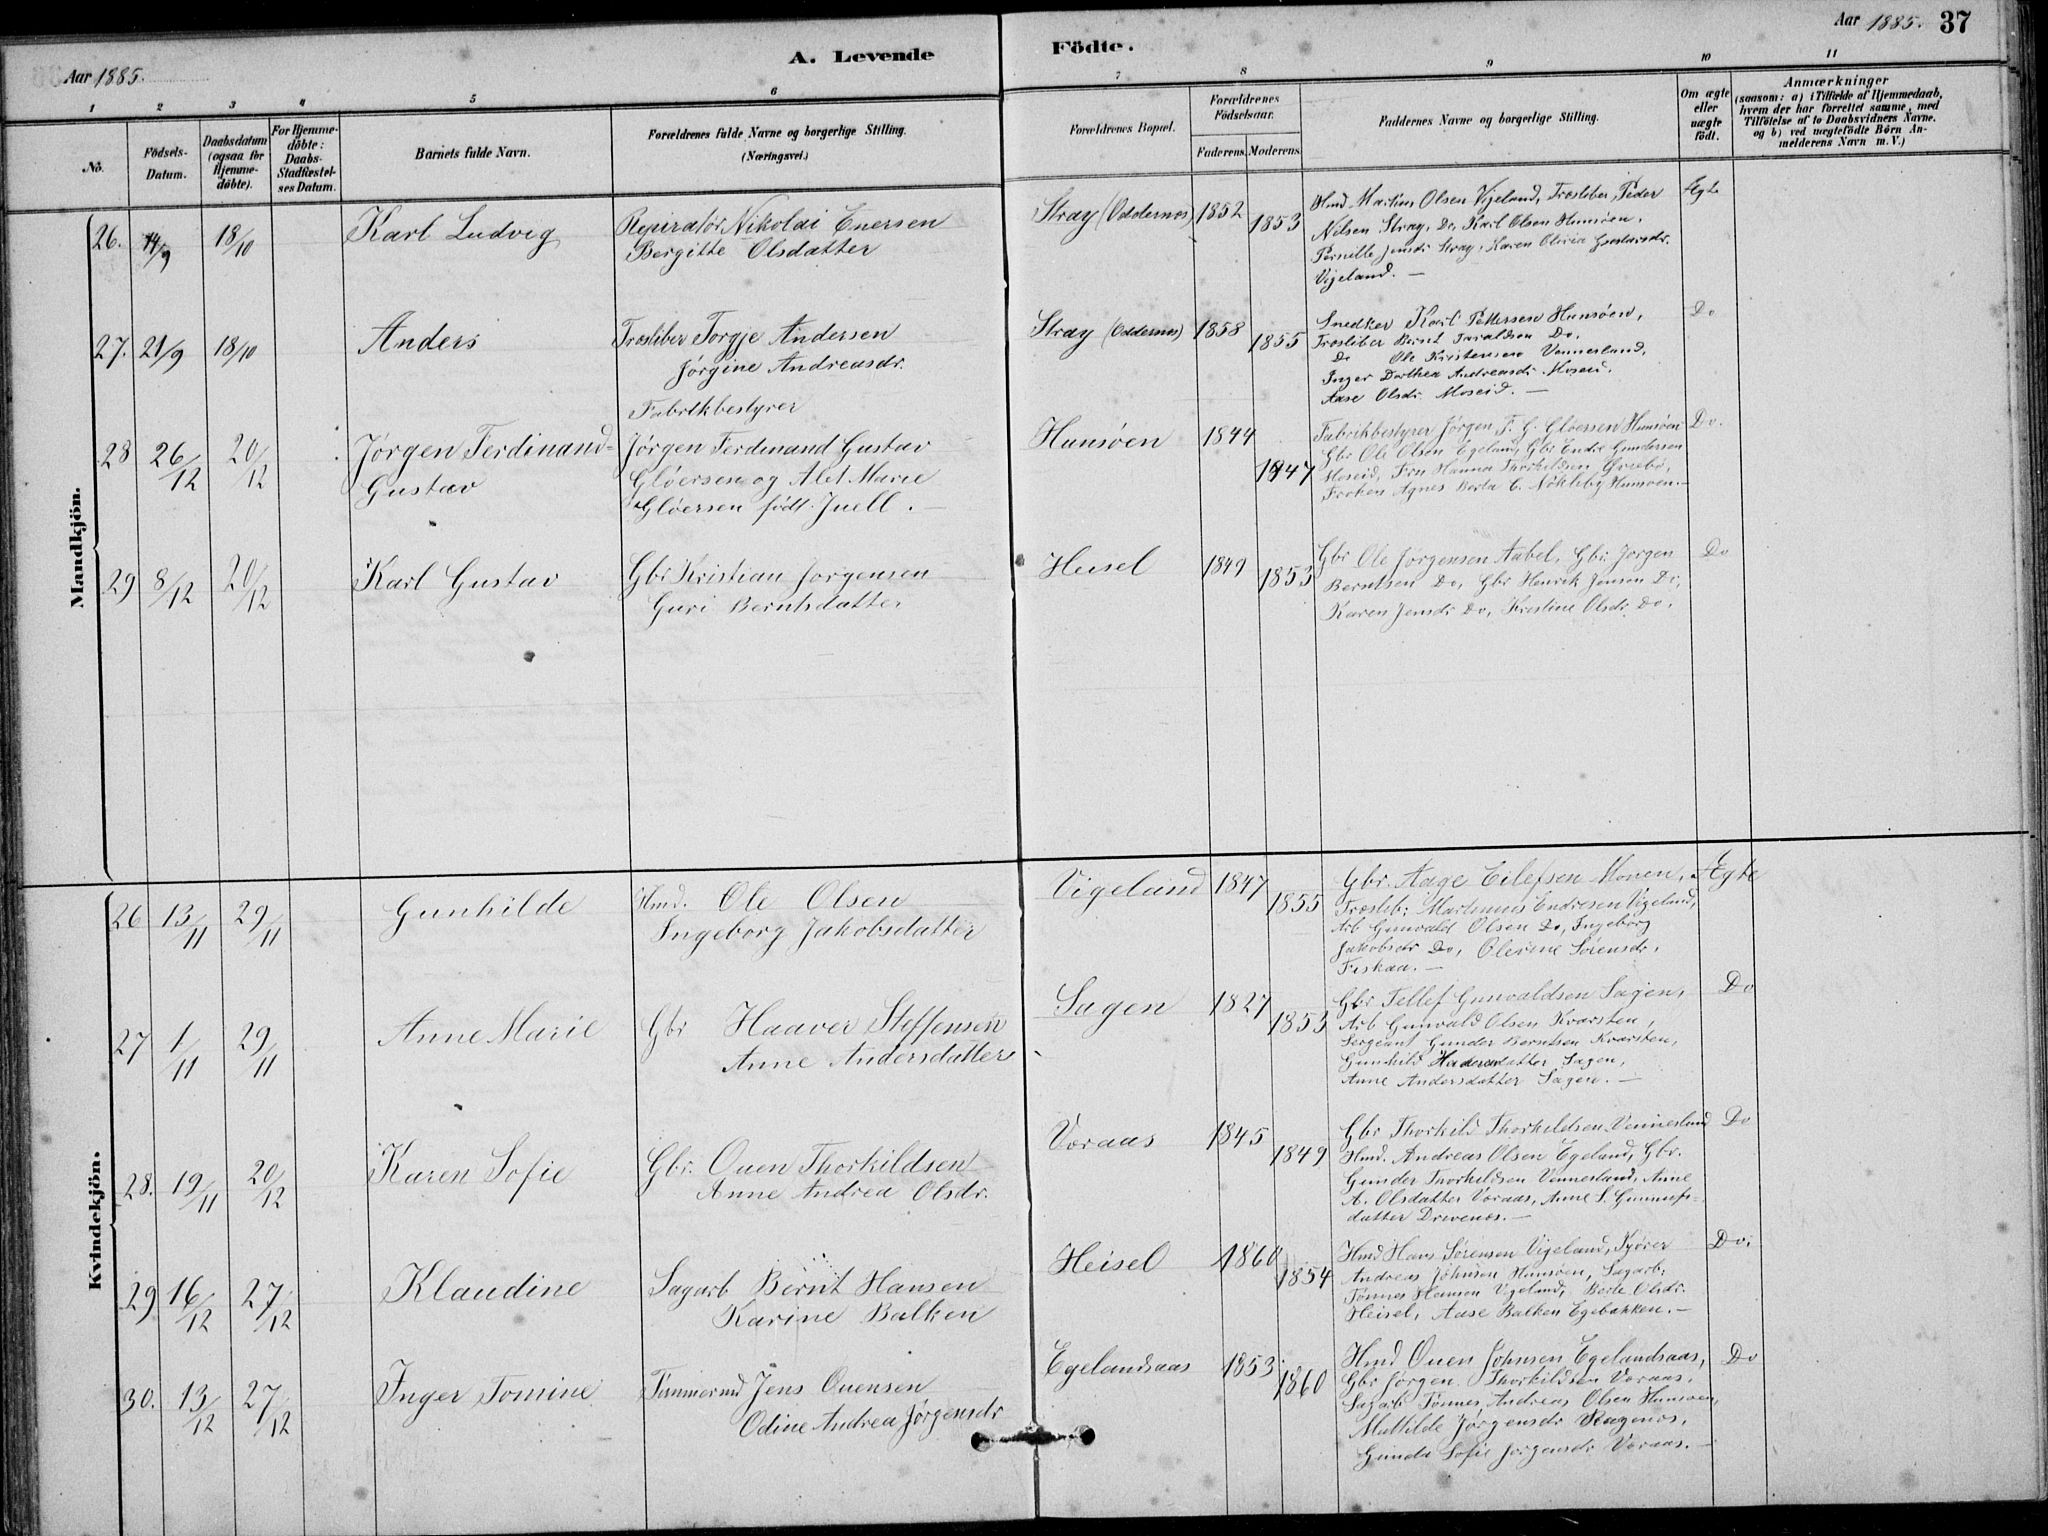 Aar 1885.
A. Levende
Födte.
Aar 1885. 37
1 2 3 4 5 6 7 8 9 10 11
No.
Födsels-
Datum.
Daabsdatum
(ogsaa for
Hjemme-
döbte).
For Hjemme-
döbte:
Daabs-
Stadfæstel-
ses Datum.
Barnets fulde Navn.
Forældrenes fulde Navne og borgerlige Stilling.
(Næringsvei.)
Forældrenes Bopæl.
Forældrenes
Födselsaar.
Faderens. Moderens.
Faddernes Navne og borgerlige Stilling.
Om ægte
eller
uægte
födt.
Anmærkninger
(saasom: a) i Tilfælde af Hjemmedaab,
hvem der har forrettet samme, med
Tilföielse af to Daabsvidners Navne.
og b) ved uægtefödte Börn An-
melderens Navn m. V.)
Mandkjön.
26. 14/9 18/10 Karl Ludvig
Repiratör Nikolai Enersen
Bergitte Olsdatter
Stray (Oddernes) 1852 1853
Hmd Martin Olsen Vigeland, Træsliber Peder
Nilsen Stray, Do Karl Olsen Hunsöen,
Pernille Jensdr Stray, Karen Olivia Gustavsdr.
Vigeland. —
Ægte
27. 21/9 18/10 Anders
Træsliber Torgje Andersen
Jörgine Andreasdr.
Stray (Oddernes) 1858 1855
Snedker Karl Pettersen Hunsöen,
Træsliber Bernt Taraldsen Do,
Do Ole Kristensen Vennesland,
Inger Dorthea Andreasdr Moseid,
Aase Olsdr. Moseid. —
Do
28 26/12 20/12 Jörgen Ferdinand
Gustav
Fabrikbestyrer
Jörgen Ferdinand Gustav
Glöersen og Alet Marie
Glöersen födt Juell. —
Hunsöen 1844 1847
Fabrikbestyrer Jörgen F. G. Glöersen Hunsöen
Gbr Ole Olsen Egeland, Gbr Endre Gundersen
Moseid, Fru Hanna Thorkildsen Övrebö,
Fröken Agnes Berta C. Nökleby Hunsöen. —
Do.
29 8/12 20/12 Karl Gustav
Gbr Kristian Jörgensen
Guri Berntsdatter
Heisel 1849 1853
Gbr Ole Jörgensen Aabel, Gbr. Jörgen
Berntsen Do, Gbr Henrik Jensen Do,
Karen Jensdr Do, Kristine Olsdr Do.
Do
Kvindekjön.
26 13/11 29/11 Gunhilde
Hmd. Ole Olsen
Ingeborg Jakobsdatter
Vigeland 1847 1855
Gbr. Aage Eilefsen Moen,
Træslib: Martinius Endresen Vigeland,
Arb Gunvald Olsen Do, Ingeborg
Jakobsdr Do, Olevine Sörensdr.
Fiskaa. —
Ægte
27 1/11 29/11 Anne Marie
Gbr Haaver Steffensen
Anne Andersdatter
Sagen 1827 1853
Gbr Tellef Gunvaldsen Sagen,
Arb Gunvald Olsen Kvarsten,
Sergeant Gunder Berntsen Kvarsten,
Gunhild Haaversdatter Sagen,
Anne Andersdatter Sagen. —
Do
28. 19/11 20/12 Karen Sofie
Gbr. Ouen Thorkildsen
Anne Andrea Olsdr.
Voraas 1845 1849
Gbr Thorkild Thorkildsen Vennesland
Hmd. Andreas Olsen Egeland, Gbr.
Gunder Thorkildsen Vennesland, Anne
A. Olsdatter Voraas, Anne S. Gunnufs-
datter Drivenes. —
Do
29 16/12 27/12 Klaudine
Sagarb Bernt Hansen
Karine Balken
Heisel 1860 1854
Hmd Hans Sörensen Vigeland, Kjörer
Andreas Johnsen Hunsöen, Sagarb:
Tönnes Hansen Vigeland, Berte Olsdr.
Heisel, Aase Balken Egebakken. —
Do.
30. 13/12 27/12 Inger Tomine
Tømmermd Jens Ouensen
Odine Andrea Jörgensdr
Egelandsaas 1853 1860
Hmd Ouen Johnsen Egelandsaas,
Gbr Jörgen Thorkildsen Voraas,
Sagarb Tönnes Andreas Olsen Hunsöen,
Mathilde Jörgensdr Ragenes,
Gunda Sofie Jörgensdr Voraas. —
Do